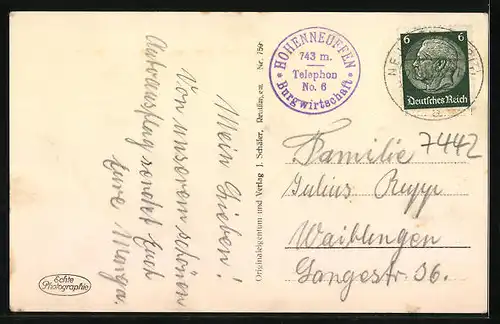 Meine Lieben!
Von unserem schönen
Autoausflug sendet Euch
Eure Marga.
Echte
Photographie
Originaleigentum und Verlag J. Schäfer, Neuffen
HOHENNEUFFEN
743 m.
Telephon
No. 6
Burgwirtschaft
6 6
Deutsches Reich
7442
Familie
Julius Rupp
Waiblingen
Langestr. 36.